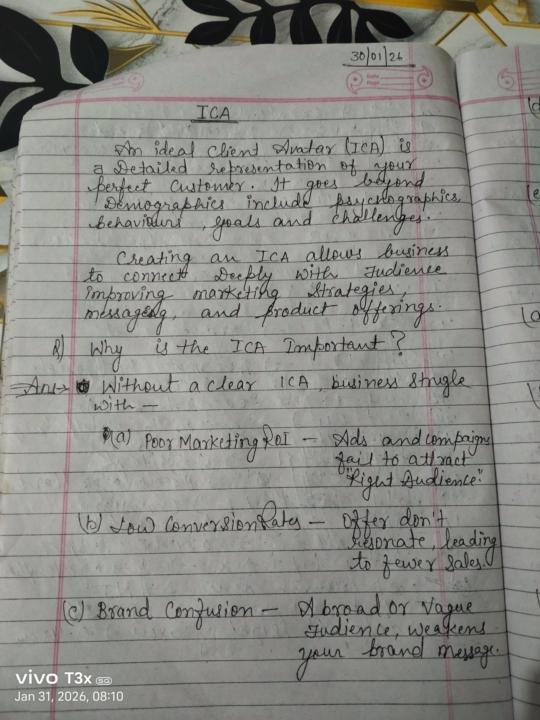 30/01/26
Date
Page
ICA
An ideal Client Avatar (ICA) is
a Detailed representation of your
perfect Customer. It goes beyond
Demographics include psychographics,
behaviours, goals and challenges.
Creating an ICA allows business
to connect Deeply with Audience
improving marketing Strategies,
messaging, and product offerings.
Q) Why is the ICA Important?
Ans→ Without a clear ICA, business Strugle
with —
(a) Poor Marketing ROI — Ads and compaigns
fail to attract
"Right Audience".
(b) Low Conversion Rates — Offer don't
resonate, leading
to fewer Sales.
(c) Brand Confusion — A broad or Vague
Audience, weakens
your brand message.
vivo T3x 5G
Jan 31, 2026, 08:10